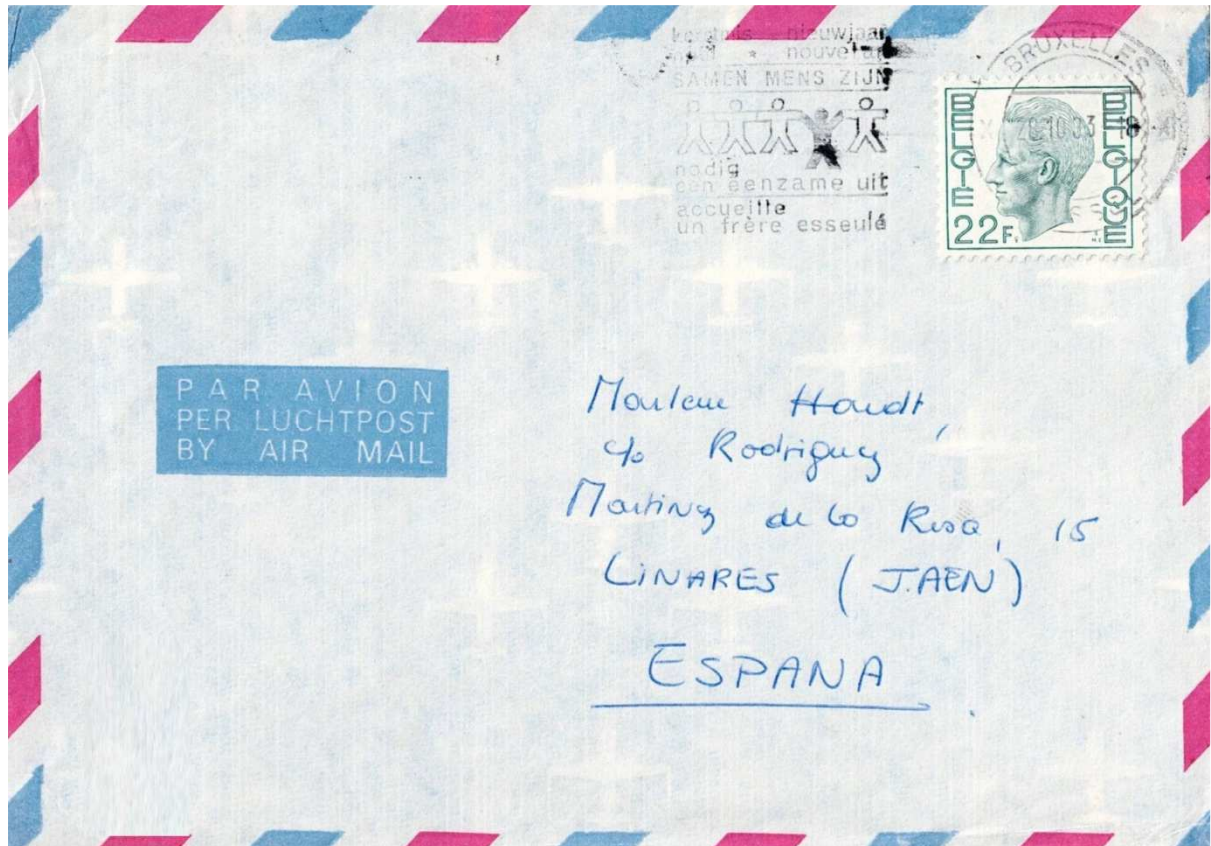 kerstmis nieuwjaar
noël * nouvel an
SAMEN MENS ZIJN
nodig
een eenzame uit
accueille
un frère esseulé
BRUXELLES
BELGIE
BELGIQUE
22F.
PAR AVION
PER LUCHTPOST
BY AIR MAIL
c/o Rodriguez
Martinez de la Rosa, 15
LINARES (JAEN)
ESPANA